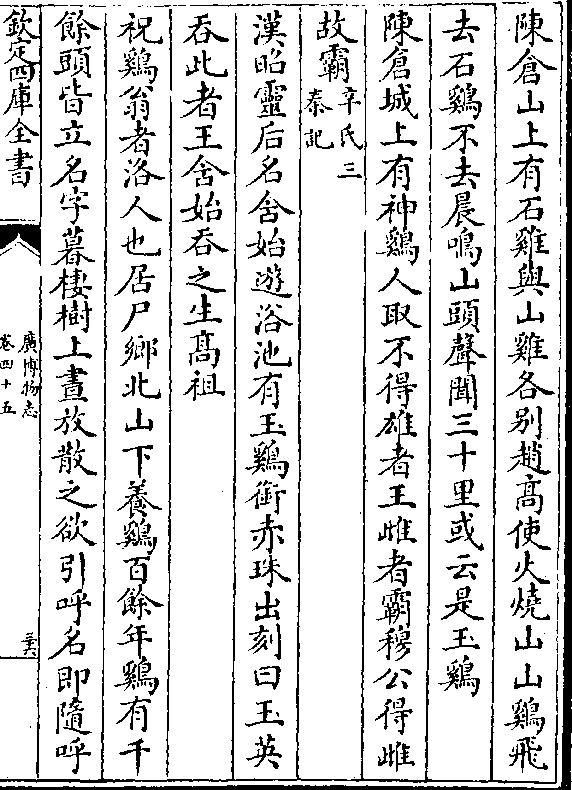 陳倉山上有石雞與山雞各别趙髙使火燒山山鷄飛
去石鷄不去晨鳴山頭聲聞三十里或云是玉鷄
陳倉城上有神鷄人取不得雄者王雌者霸穆公得雌
故霸辛氏三
秦記
漢昭靈后名含始遊浴池有玉鷄銜赤珠出刻曰玉英
吞此者王含始吞之生髙祖
祝鷄翁者洛人也居尸鄉北山下養鷄百餘年鷄有千
餘頭皆立名字暮棲樹上晝放散之欲引呼名即隨呼
欽定四庫全書
廣博物志
卷四十五
三六